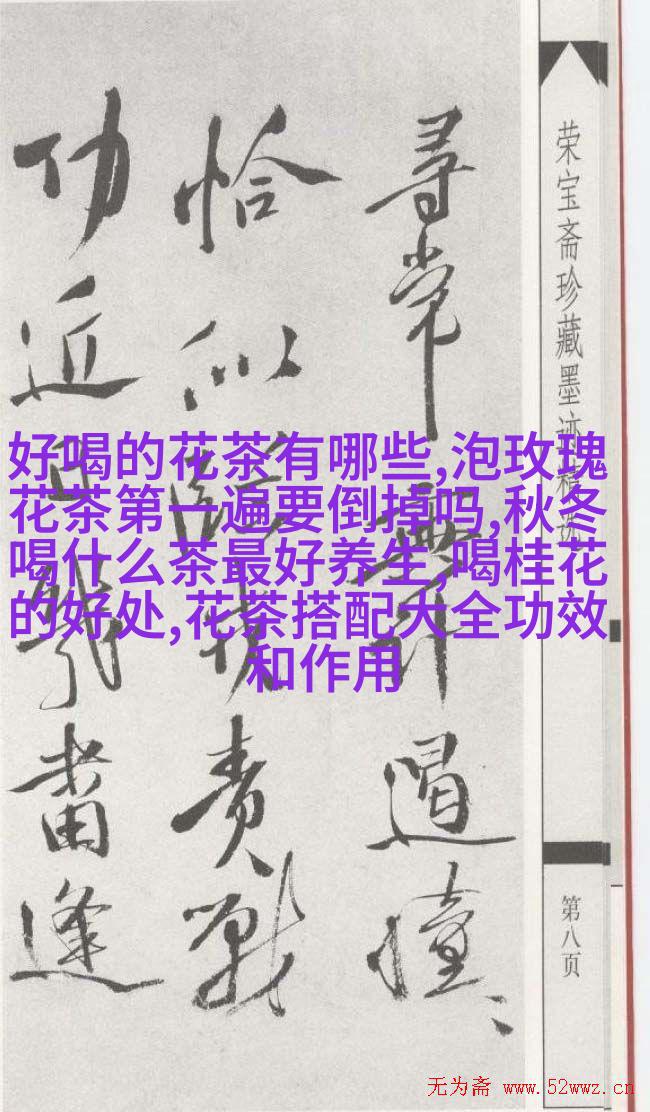 好喝的花茶有哪些,泡玫瑰
花茶第一遍要倒掉吗,秋冬
喝什么茶最好养生,喝桂花
的好处,花茶搭配大全功效
和作用
荣宝斋珍藏墨迹精选
第八页
尋常
恰似責戰
功近畨逢
无为斋 www.52wwz.cn